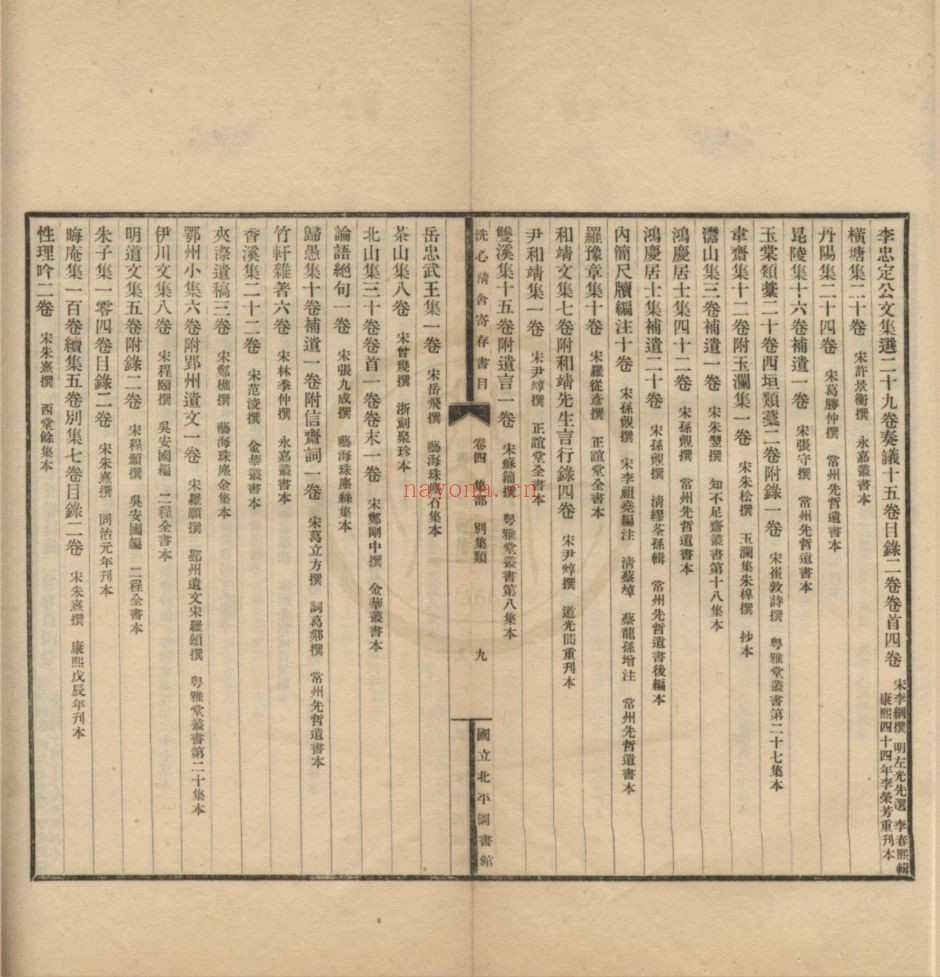 李忠定公文集選二十九卷奏議十五卷目錄二卷卷首四卷 宋李綱撰 明左光先選 李春熙輯 康熙四十四年李榮芳重刊本
橫塘集二十卷 宋許景衡撰 永嘉叢書本
丹陽集二十四卷 宋葛勝仲撰 常州先哲遺書本
毘陵集十六卷補遺一卷 宋張守撰 常州先哲遺書本
玉棠類藳二十卷西垣類藳二卷附錄一卷 宋崔敦詩撰 粵雅堂叢書第二十七集本
韋齋集十二卷附玉瀾集一卷 宋朱松撰 玉瀾集朱槔撰 抄本
灊山集三卷補遺一卷 宋朱翌撰 知不足齋叢書第十八集本
鴻慶居士集四十二卷 宋孫覿撰 常州先哲遺書本
鴻慶居士集補遺二十卷 宋孫覿撰 清繆荃孫輯 常州先哲遺書後編本
內簡尺牘編注十卷 宋孫覿撰 宋李祖堯編注 清蔡焯 蔡龍孫增注 常州先哲遺書本
羅豫章集十卷 宋羅從彥撰 正誼堂全書本
和靖文集七卷附和靖先生言行錄四卷 宋尹焞撰 道光間重刊本
尹和靖集一卷 宋尹焞撰 正誼堂全書本
雙溪集十五卷附遺言一卷 宋蘇籀撰 粵雅堂叢書第八集本
洗心精舍寄存書目 卷四 集部 別集類 九 國立北平圖書館
岳忠武王集一卷 宋岳飛撰 藝海珠塵石集本
茶山集八卷 宋曾幾撰 浙刻聚珍本
北山集三十卷卷首一卷卷末一卷 宋鄭剛中撰 金華叢書本
論語絕句一卷 宋張九成撰 藝海珠塵絲集本
歸愚集十卷補遺一卷附信齋詞一卷 宋葛立方撰 詞葛郯撰 常州先哲遺書本
竹軒雜著六卷 宋林季仲撰 永嘉叢書本
香溪集二十二卷 宋范浚撰 金華叢書本
夾漈遺稿三卷 宋鄭樵撰 藝海珠塵金集本
鄂州小集六卷附郢州遺文一卷 宋羅願撰 郢州遺文宋羅頌撰 粵雅堂叢書第二十集本
伊川文集八卷 宋程頤撰 吳安國編 二程全書本
明道文集五卷附錄二卷 宋程顥撰 吳安國編 二程全書本
朱子集一零四卷目錄二卷 宋朱熹撰 同治元年刊本
晦庵集一百卷續集五卷別集七卷目錄二卷 宋朱熹撰 康熙戊辰年刊本
性理吟二卷 宋朱熹撰 西堂餘集本
nayona.cn